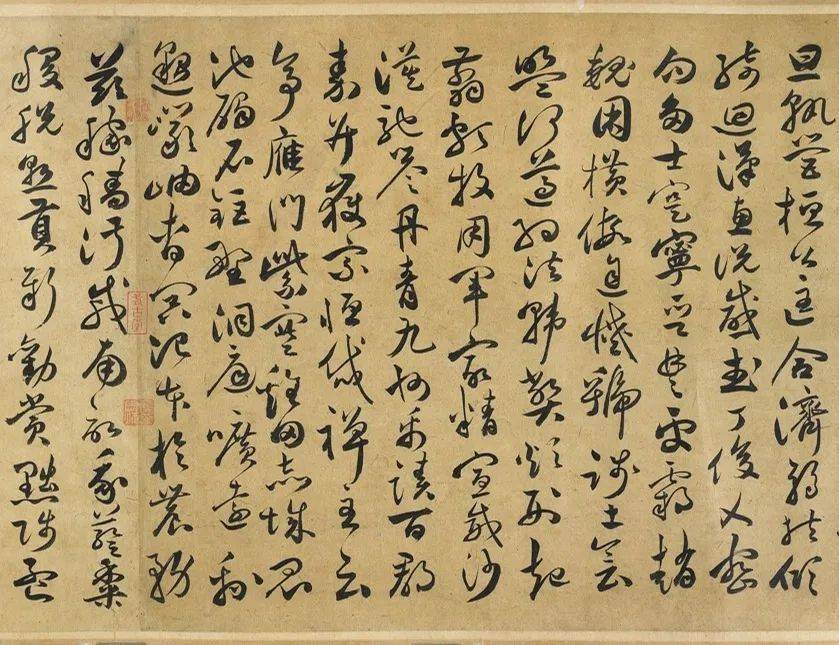 旦孰營桓公匡合濟弱扶傾
綺迴漢惠說感武丁俊乂密
勿多士寔寧晉楚更霸趙
魏困橫假途滅虢踐土會
盟何遵約法韓弊煩刑起
翦頗牧用軍最精宣威沙
漠馳譽丹青九州禹跡百郡
秦并嶽宗恒岱禪主云
亭雁門紫塞雞田赤城昆
池碣石鉅野洞庭曠遠綿
邈巖岫杳冥治本於農務
茲稼穡俶載南畝我藝黍
稷稅熟貢新勸賞黜陟孟